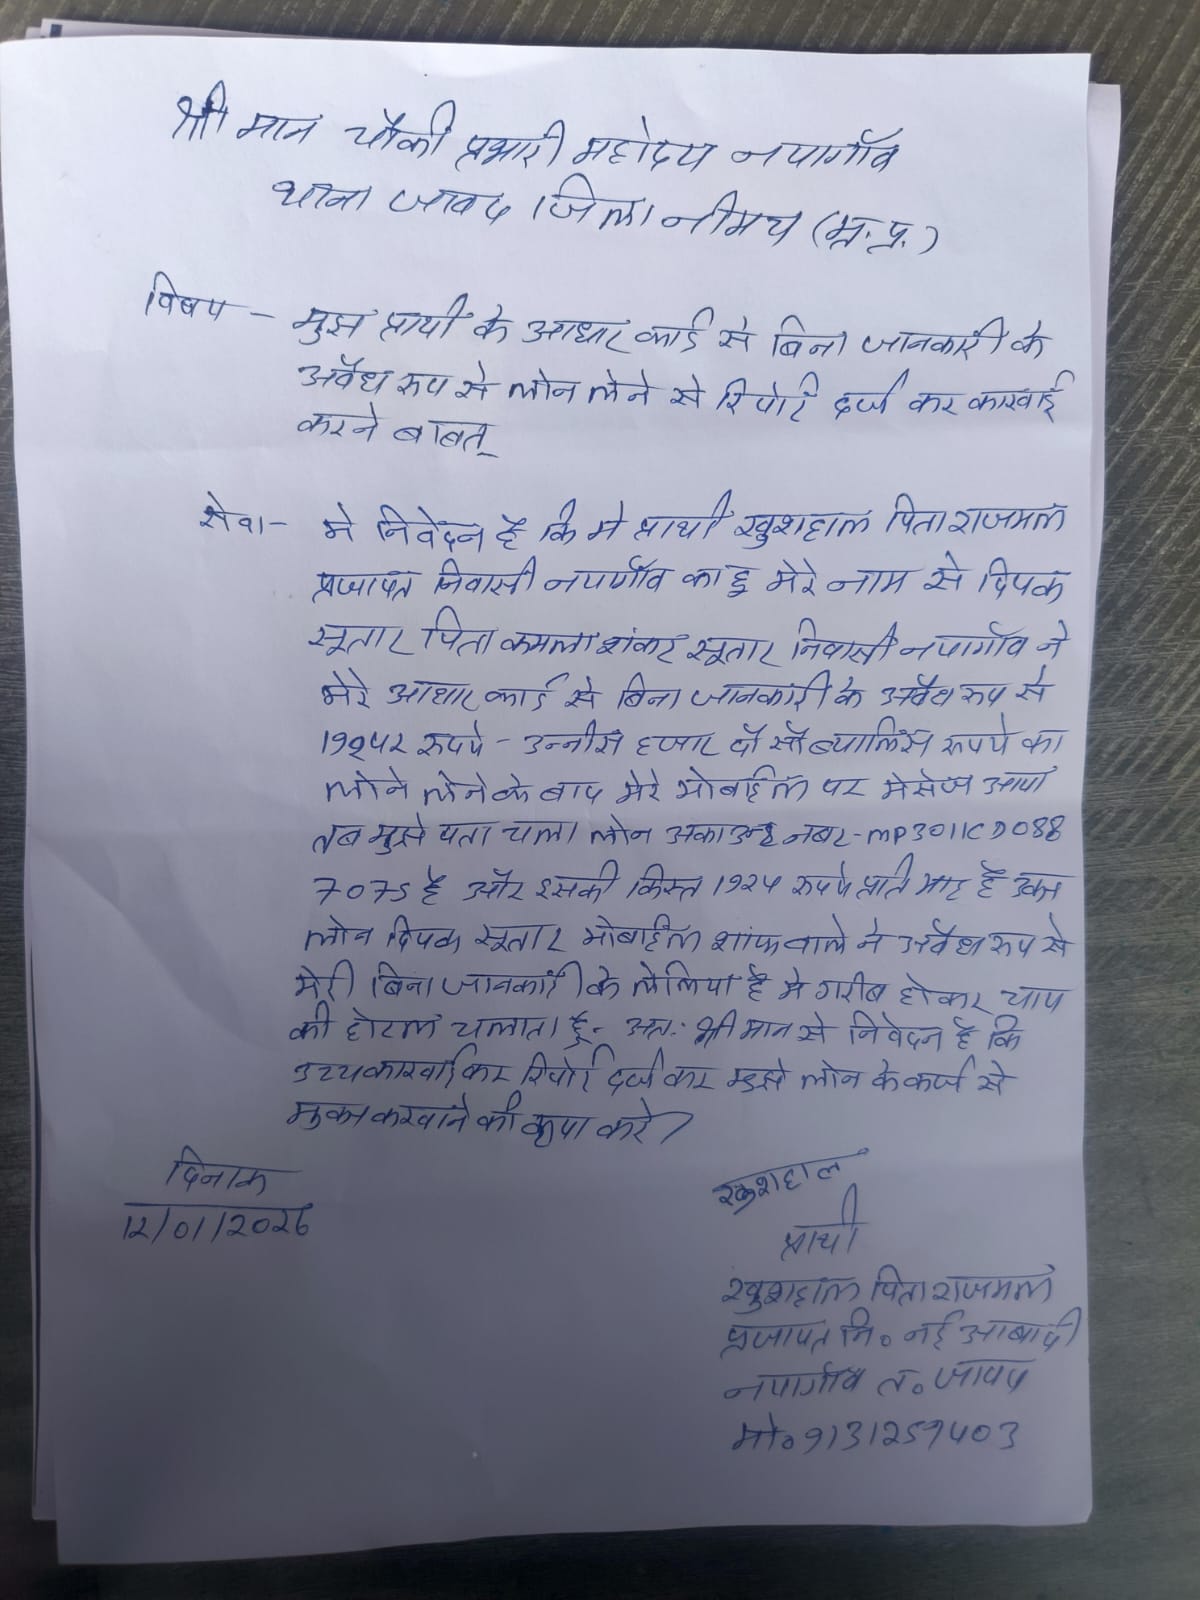 श्री मान चौकी प्रभारी महोदय नयागाँव
थाना जावद जिला नीमच (म.प्र.)
विषय - मुझ प्रार्थी के आधार कार्ड से बिना जानकारी के
अवैध रूप से लोन लेने से रिपोर्ट दर्ज कर कारवाई
करने बाबत्
सेवा - मे निवेदन है कि मे प्रार्थी खुशहाल पिता राजमल
प्रजापत निवासी नयागाँव का हु मेरे नाम से दिपक
सूतार पिता कमलाशंकर सूतार निवासी नयागाँव ने
मेरे आधार कार्ड से बिना जानकारी के अवैध रूप से
रूपये - उन्नीस हजार दौ सौ ब्यालिस रूपये का
लोने लेने के बाद मेरे मोबाईल पर मेसेज आया
तब मुझे पता चला लोन अकाउन्ट नंबर - MP3011CD088
7075 है और इसकी किस्त 1924 रूपये प्रति माह है उक्त
लोन दिपक सूतार मोबाईल शॉफ वाले ने अवैध रूप से
मेरी बिना जानकारी के लेलिया है मे गरीब होकर चाय
की होटल चलाता हू - अत: श्री मान से निवेदन है कि
उच्च कारवाई कर रिपोर्ट दर्ज कर मुझे लोन के कर्ज से
मुक्त करवाने की कृपा करे /
दिनाक
12/01/2026
खुशहाल
प्रार्थी
खुशहाल पिता राजमल
प्रजापत नि० नई आबादी
नयागाँव त० जावद
मो० 9131259403